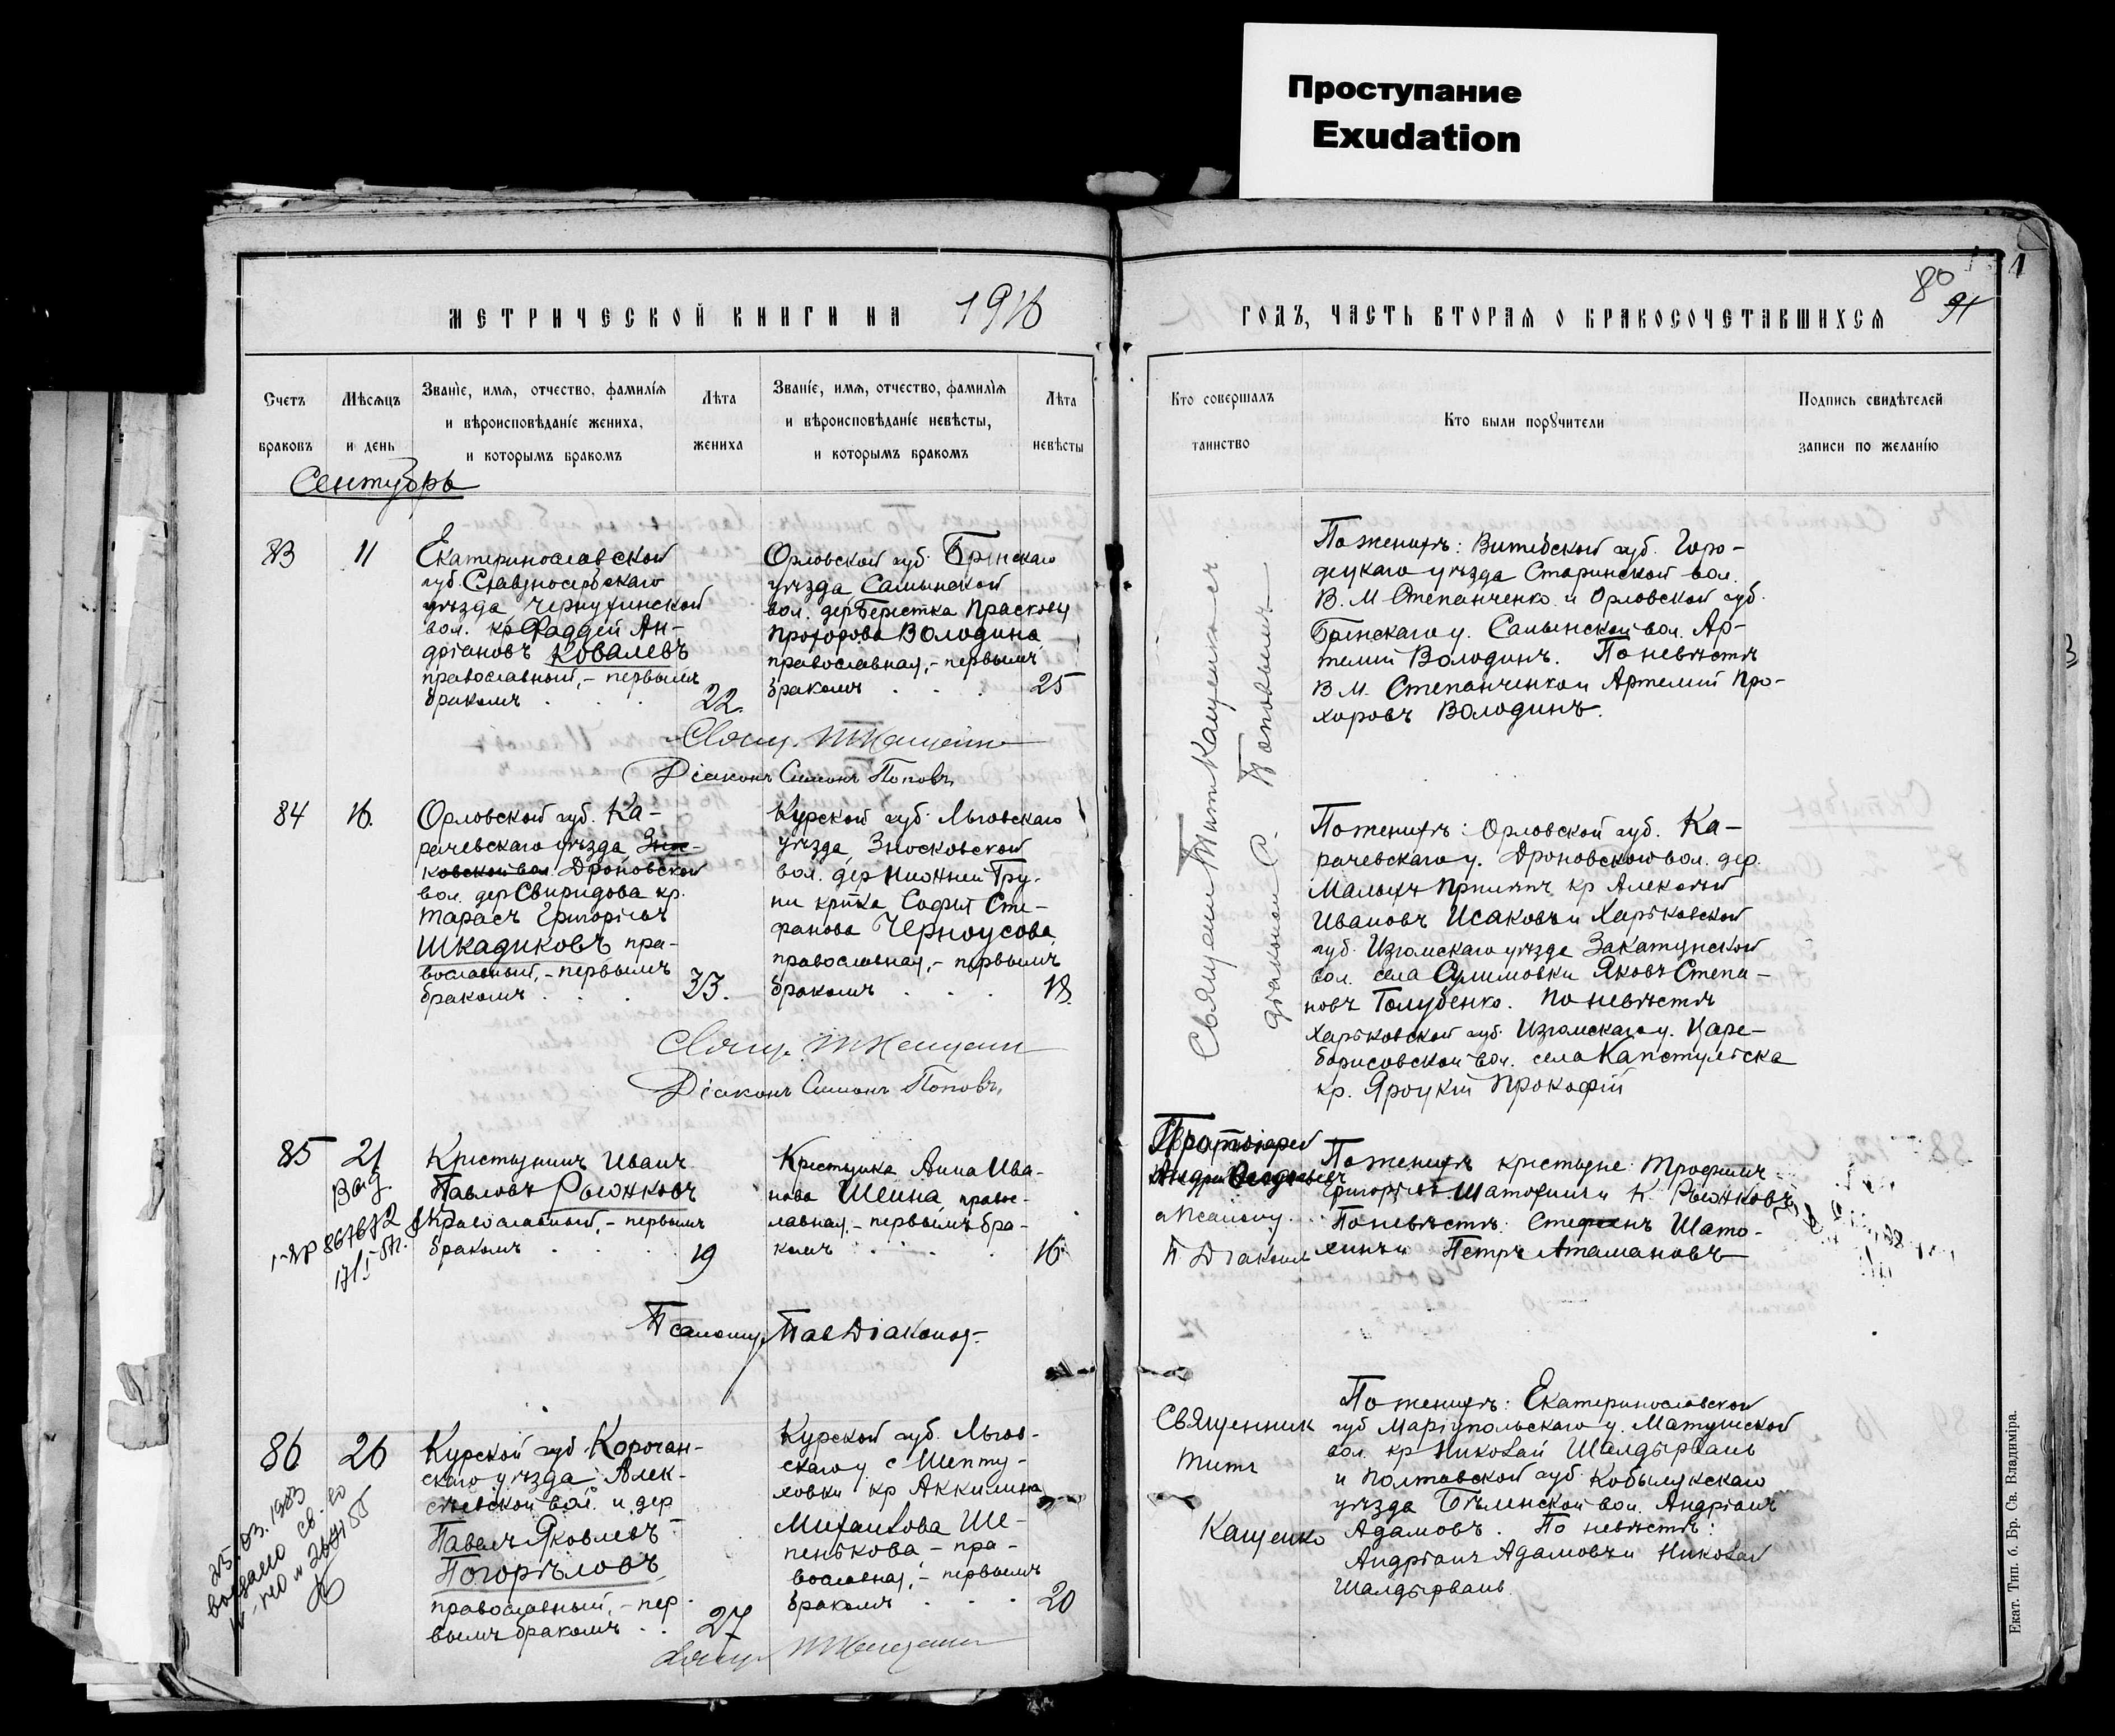 Проступание
Exudation
МЕТРИЧЕСКОЙ КНИГИ НА 1916
ГОДЪ, ЧАСТЬ ВТОРАЯ О БРАКОСОЧЕТАВШИХСЯ
80
91
Счетъ
браковъ
Мѣсяцъ
и день
Званіе, имя, отчество, фамилія
и вѣроисповѣданіе жениха,
и которымъ бракомъ
Лѣта
жениха
Званіе, имя, отчество, фамилія
и вѣроисповѣданіе невѣсты,
и которымъ бракомъ
Лѣта
невѣсты
Кто совершалъ
таинство
Кто были поручители
Подпись свидѣтелей
записи по желанію
Сентябрь
83
11
Екатеринославской
губ. Славяносербскаго
уѣзда Черкухинской
вол. кр Фаддей Ан-
дріановъ Ковалевъ
православный,- первымъ
бракомъ
22.
Орловской губ. Брянскаго
уѣзда Салынской
вол. дер Берестка Прасковья
Прохорова Володина
православная,- первымъ
бракомъ
25
Свящ. Т Кащенко
Діаконъ Симонъ Поповъ
Священни Титъ Кащенко съ
діакономъ С. Поповымъ
По женихѣ: Витебской губ. Горо-
децкаго уѣзда Старинской вол.
В. М Степанченко и Орловской губ.
Брянскаго у. Салынской вол. Ар-
темій Володинъ. По невѣстѣ
В М. Степанченко и Артемій Про-
хоровъ Володинъ.
84
16.
Орловской губ. Ка-
рачевскаго уѣзда
Дроновской
вол. дер Свиридова кр.
Тарасъ Григорьевъ
Шкадиковъ пра-
вославный,- первымъ
бракомъ
33.
Курской губ. Льговскаго
уѣзда Зносковской
вол. дер Нижней Гру-
ни кр-ка Софья Сте-
фанова Черноусова
православная,- первымъ
бракомъ
18.
Свящ. Т Кащенко
Діаконъ Симонъ Поповъ,
По женихѣ: Орловской губ. Ка-
рачевскаго у. Дроновской вол. дер.
кр Алексѣй
Ивановъ Исаковъ и Харьковской
губ. Изюмскаго уѣзда
вол. села Сулимовки Яковъ Степа-
новъ Голубенко. По невѣстѣ
Харьковской губ. Изюмскаго у. Царе-
борисовской вол. села
кр. Яроцкій Прокофій
85
21
Выд.
1-ЯР 867672
Крестьянинъ Иванъ
Павловъ Рыжковъ
православный,- первымъ
бракомъ
19
Крестьянка Анна Ива-
нова Шеина правос-
лавная,- первымъ бра-
комъ
16.
Псаломщ. Пав Діаконов-
Протоіерей
Андрей
а Псаломщ.
П Діаконов
По женихѣ крестьяне: Трофимъ
Григорьевъ Шатохинъ и К. Рыжковъ
По невѣстѣ: Стефанъ Шато-
хинъ и Петръ Атамановъ
86
26
25.03.1983
выдано св. во
Курской губ. Корочан-
скаго уѣзда Алек-
сѣевской вол. и дер
Павелъ Яковлевъ
Погорѣловъ
православный,- пер-
вымъ бракомъ
27
Курской губ. Льгов-
скаго у с Шепту-
ховки кр Аккилина
Михайлова Ше-
пенькова - пра-
вославная,- первымъ
бракомъ
20
Свящ. Т Кащенко
Священник
Титъ
Кащенко
По женихѣ: Екатеринославской
губ Маріупольскаго у.
вол. кр Николай Шалдырвань
и Полтавской губ. Кобылякскаго
уѣзда Бѣлинской вол. Андріанъ
Адамовъ. По невѣстѣ:
Андріанъ Адамовъ и Николай
Шалдырвань.
Екат. Тип. б. Бр. Св. Владиміра.